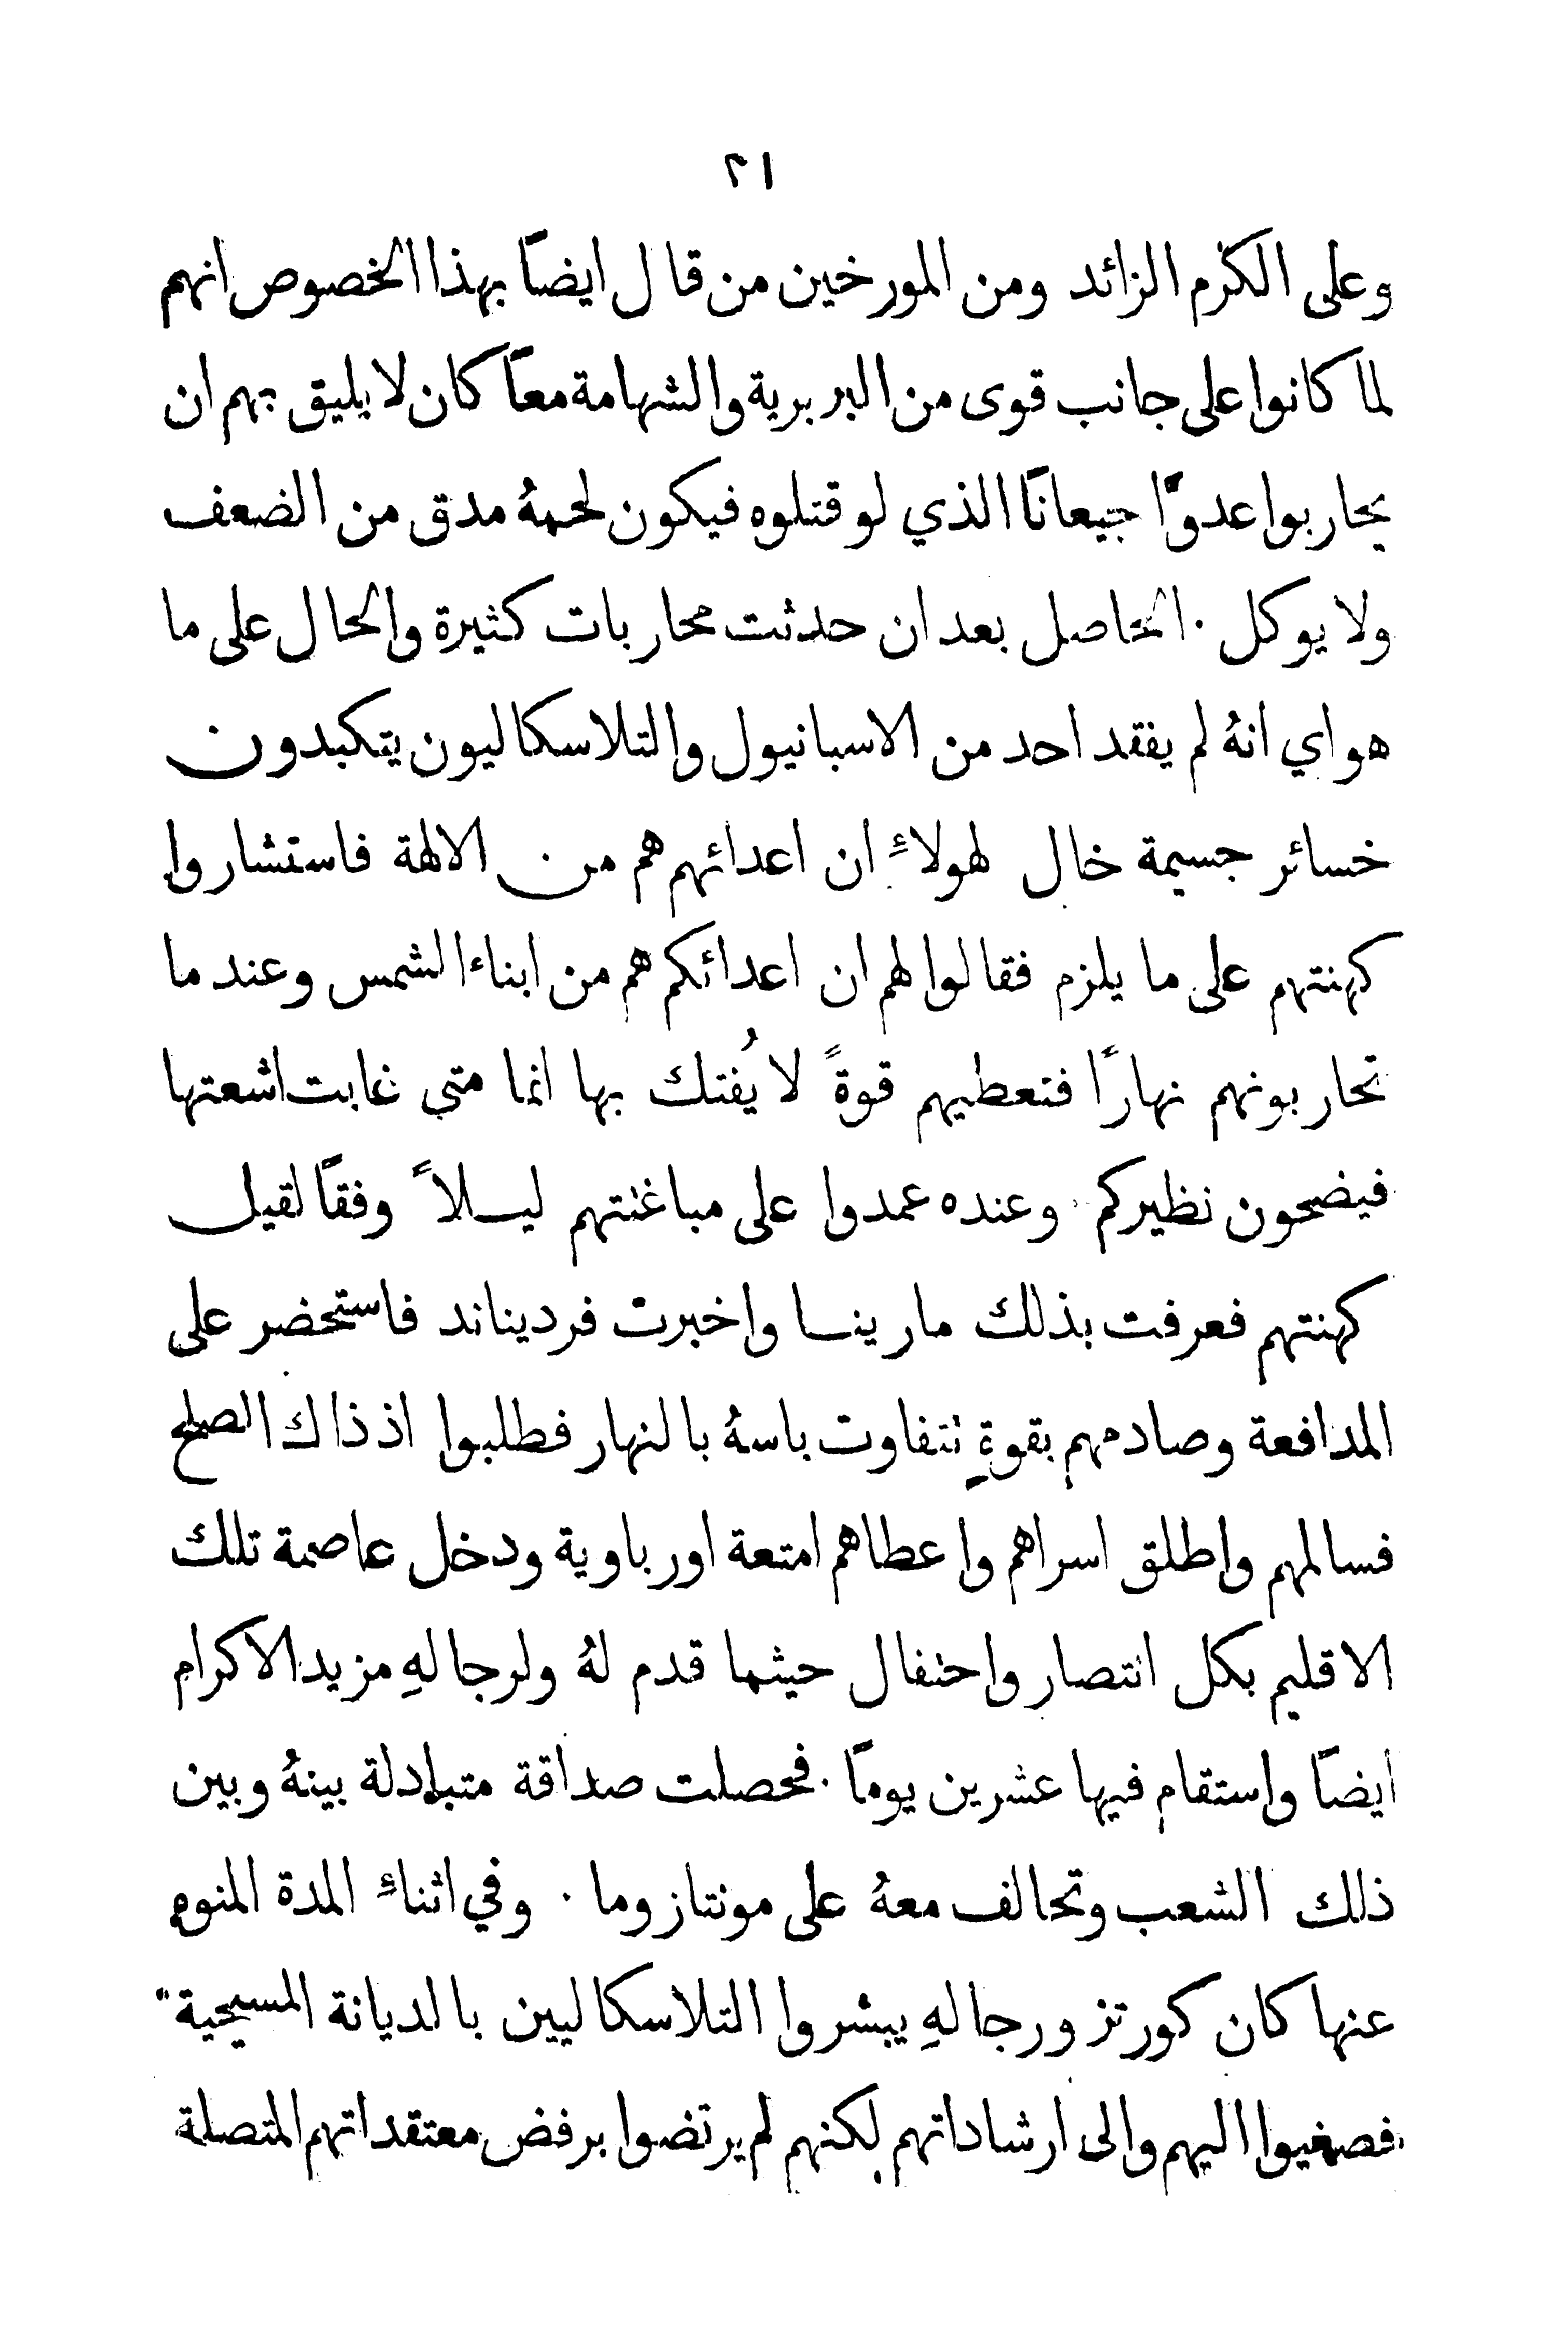 ٢١
وعلى الكرم الزائد ومن المورخين من قال ايضًا بهذا الخصوص انهم
لما كانوا على جانب قوى من البربرية والشهامة معًا كان لا يليق بهم ان
يحاربوا عدوًّا جيعانًا الذي لو قتلوه فيكون لحمهُ مدق من الضعف
ولا يوكل ٠ الحاصل بعد ان حدثت محاربات كثيرة والحال على ما
هو اي انهُ لم يفقد احد من الاسبانيول والتلاسكاليون يتكبدون
خسائر جسيمة خال لهولاءِ ان اعدائهم هم من الالهة فاستشاروا
كهنتهم على ما يلزم فقالوا لهم ان اعدائكم هم من ابناء الشمس وعند ما
تحاربونهم نهارًا فتعطيهم قوةً لا يُفتك بها انما متى غابت اشعتها
فيضحون نظيركم ٠ وعنده عمدوا على مباغتتهم ليلاً وفقًا لقيل
كهنتهم فعرفت بذلك مارينا واخبرت فرديناند فاستحضر على
المدافعة وصادمهم بقوةٍ تتفاوت باسهُ بالنهار فطلبوا اذ ذاك الصلح
فسالمهم واطلق اسراهم واعطاهم امتعة اورباوية ودخل عاصمة تلك
الاقليم بكل انتصار واحتفال حيثما قدم لهُ ولرجالهِ مزيد الاكرام
ايضًا واستقام فيها عشرين يومًا ٠ فحصلت صداقة متبادلة بينهُ وبين
ذلك الشعب وتحالف معهُ على مونتازوما ٠ وفي اثناءِ المدة المنوه
عنها كان كورتز ورجالهِ يبشروا التلاسكاليين بالديانة المسيحية
فصغيوا اليهم والى ارشاداتهم لكنهم لم يرتضوا برفض معتقداتهم المتصلة